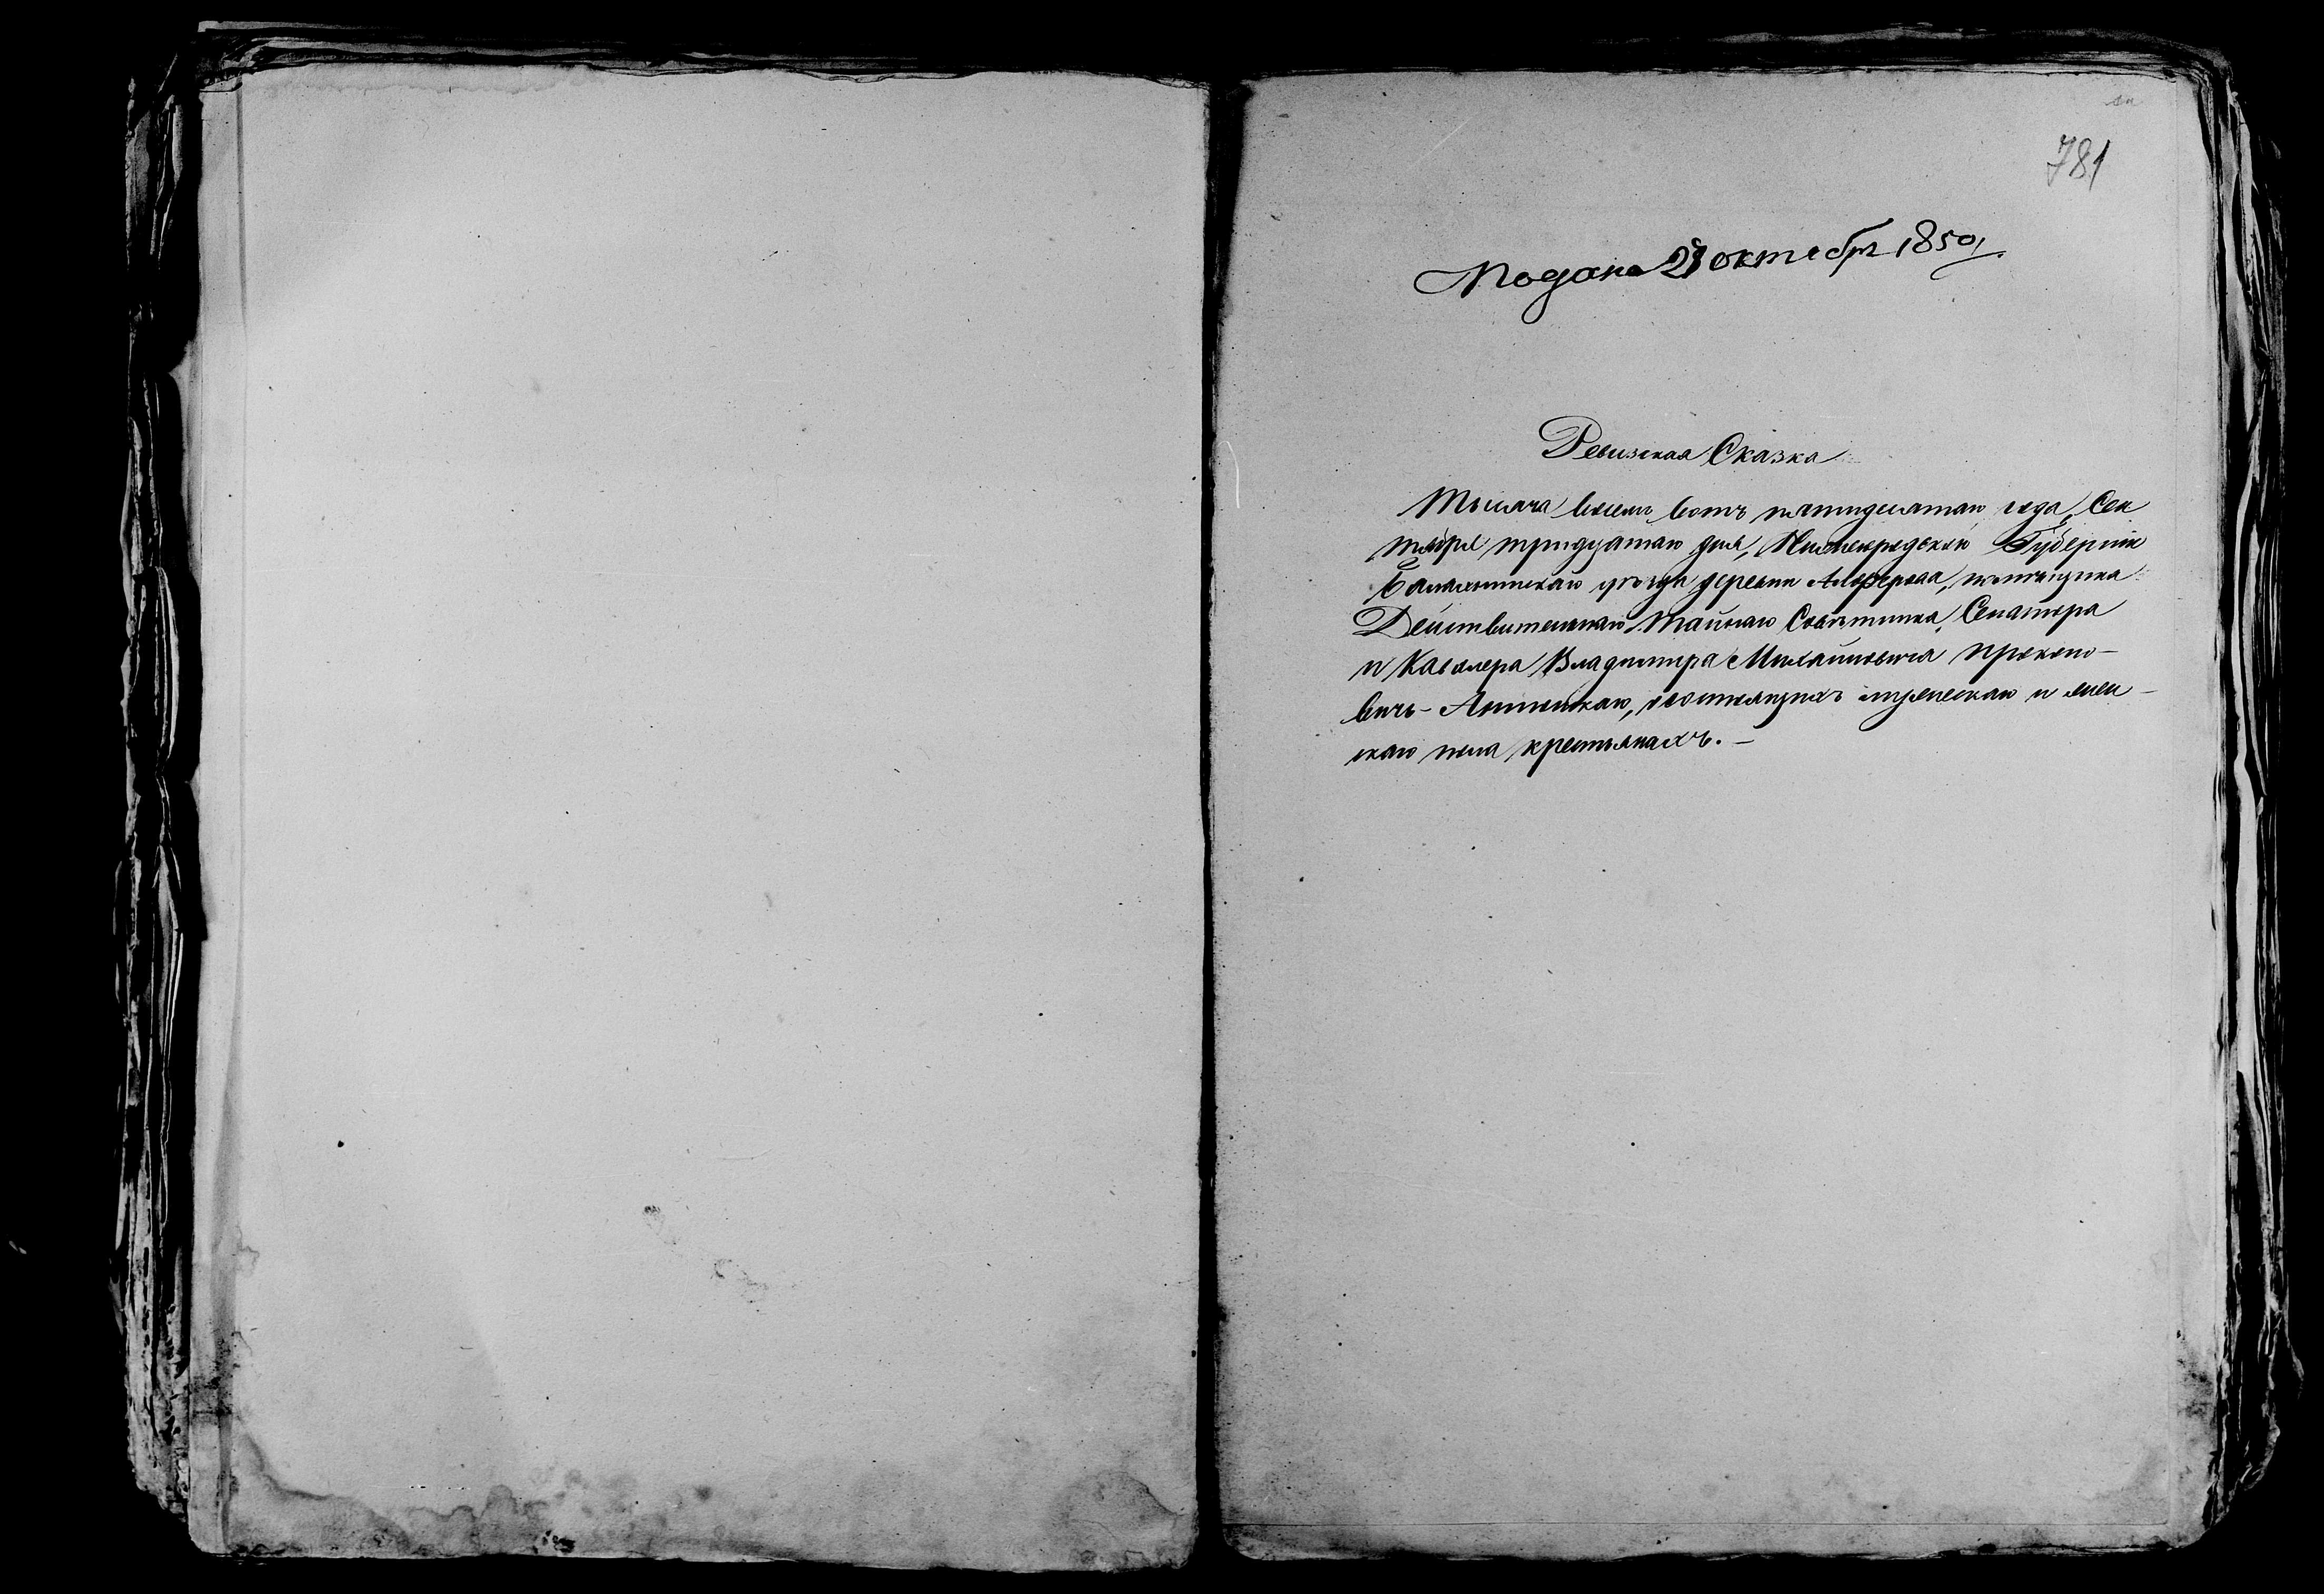 781
Подана 23 октября 1850,
Ревизская Сказка
Тысяча восемь сотъ пятидесятаго года, Сен
тября тридцатаго дня, Нижегородской Губерніи
Балахнинскаго уѣзда деревни Алферова, помѣщика
Действительнаго Тайнаго Совѣтника, Сенатора
и Кавалера Владимира Михайловича Прокопо-
вичь-Антонскаго, о состоящихъ мужескаго и жен-
скаго пола крестьянахъ. –